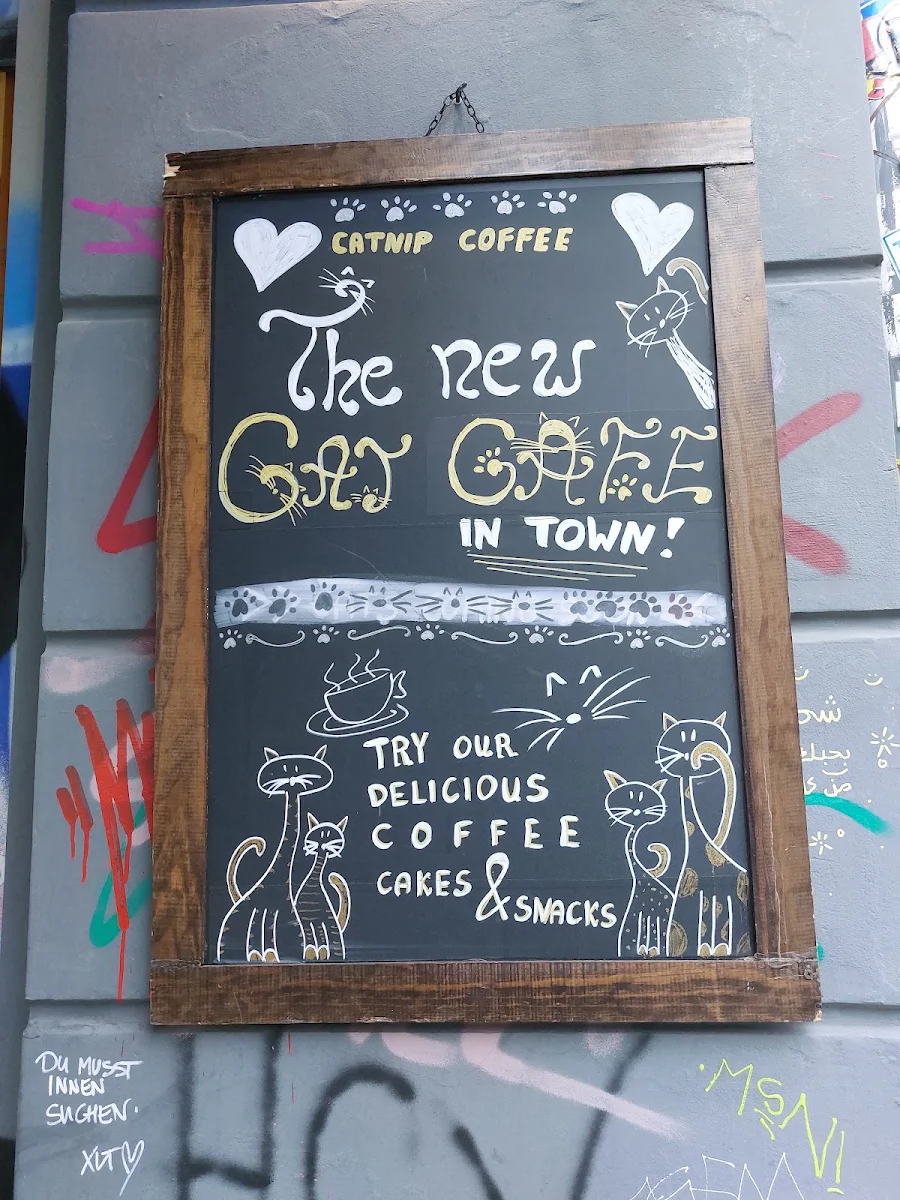 CATNIP COFFEE
The new
CAT CAFE
IN TOWN!
TRY OUR
DELICIOUS
COFFEE
CAKES & SNACKS
DU MUSST
INNEN
SUCHEN.
XLT
MSN!